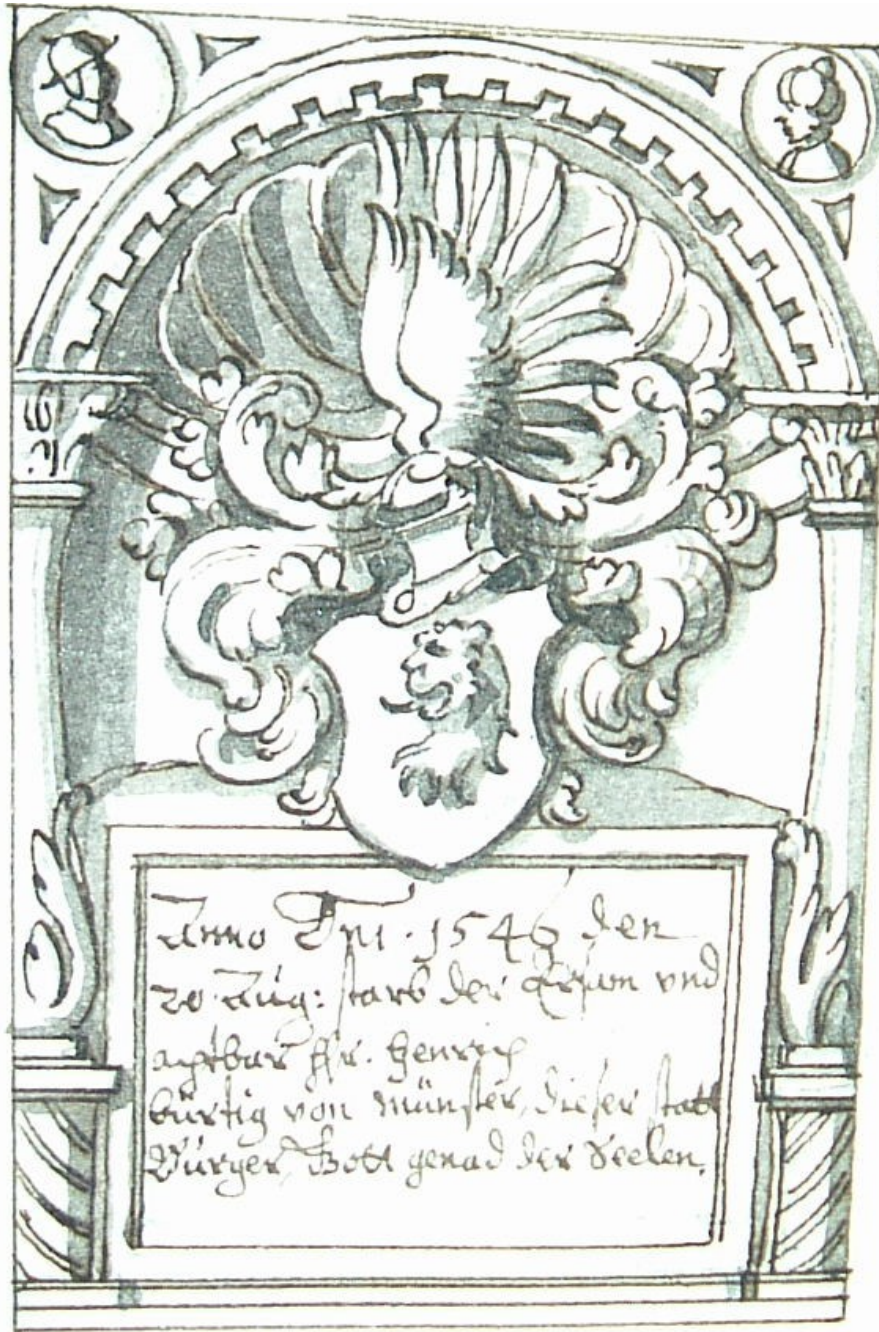 Anno Dni. 1546 den
20. Aug: starb der Ersam vnd
achtbar Hr. Henrich
bürtig von Münster, dieser statt
Bürger, Gott genad der Seelen.